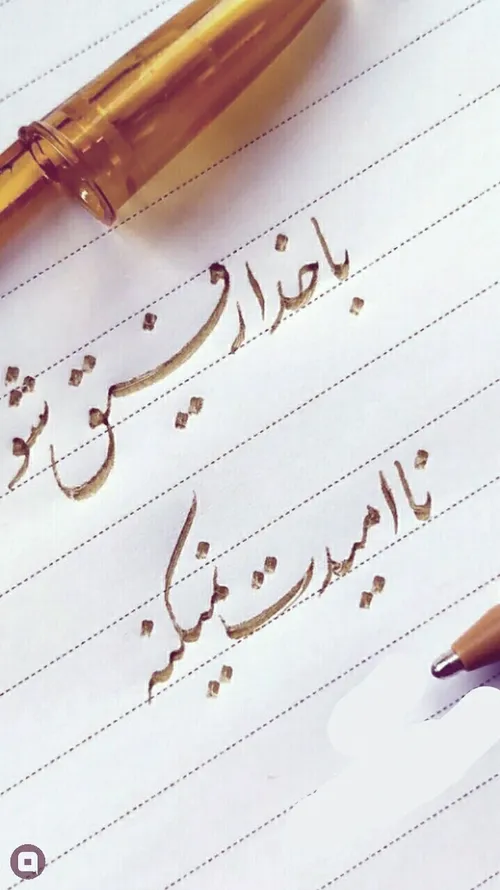 با خدا رفیق شو
نا امیدت نمیکنه